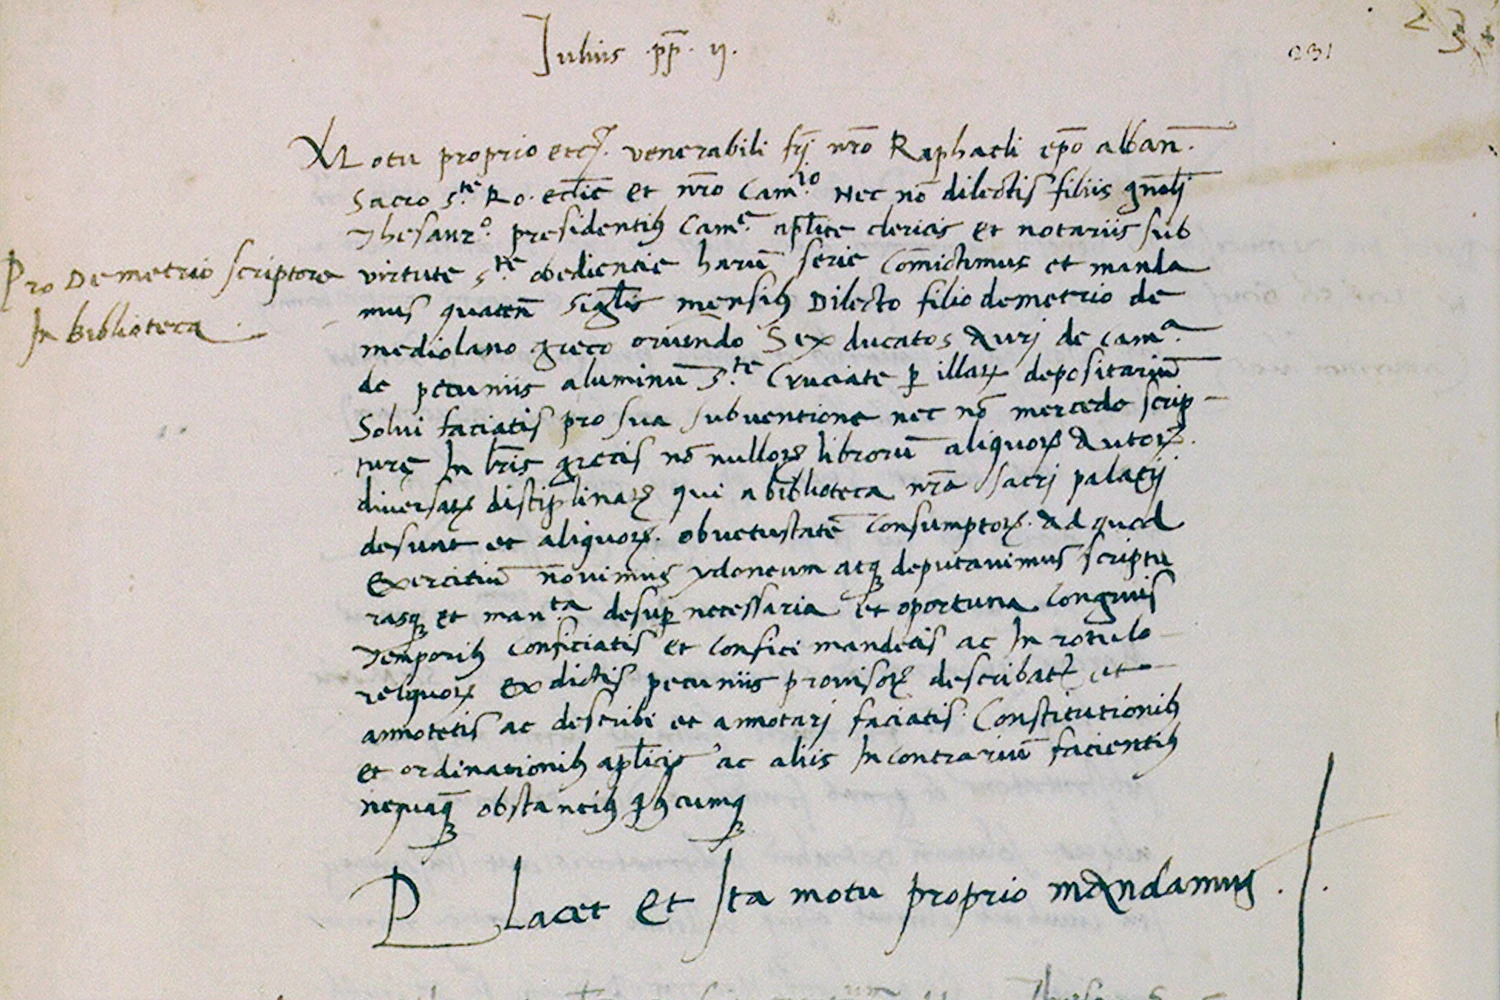 Iulius .pp. ij.
231
Motu proprio etc. venerabili frī nr̄o Raphaeli ep̄o alban̄.
Sacro s.te Ro. ecl̄ie et nr̄o Cam.io Nec nō dilectis filiis gn̄ali
Thesaur.o presidentib Cam.e apl̄ice clericis et notariis sub
Pro Demetrio scriptore
In biblioteca.
virtute s.te obedientie harū serie Comictimus et manda
mus quaten̄ sigl̄is mensib Dilecto filio demetrio de
mediolano greco oriūndo Sex ducatos Auri de Cam.a
de pecuniis aluminū s.te Cruciate p illarꝝ depositariū
Solvi faciatis pro sua subventione nec nō mercede scrip-
turę In lr̄is grecis nō nullorꝝ librorū aliquorꝝ Autorꝝ.
diversarꝝ disciplinarꝝ qui a biblioteca nr̄a sacri palatij
desunt et aliquorꝝ. obvetustatē Consumptorꝝ. Ad quod
Exercitiū novimus ydoneum atqꝫ deputavimus scriptu
rasqꝫ et man.ta desup necessaria et oportuna Congruis
Temporib Conficiatis et Confici mandetis ac In rotulo
reliquorꝝ Ex dictis pecuniis provisorꝝ describat̄ et
annotetis ac describi et annotari faciatis. Constitutionib
et ordinationib apl̄icis ac aliis In contrariū facientib
nequaqꝫ obstantib qbcumqꝫ
Placet et Ita motu proprio mandamus.